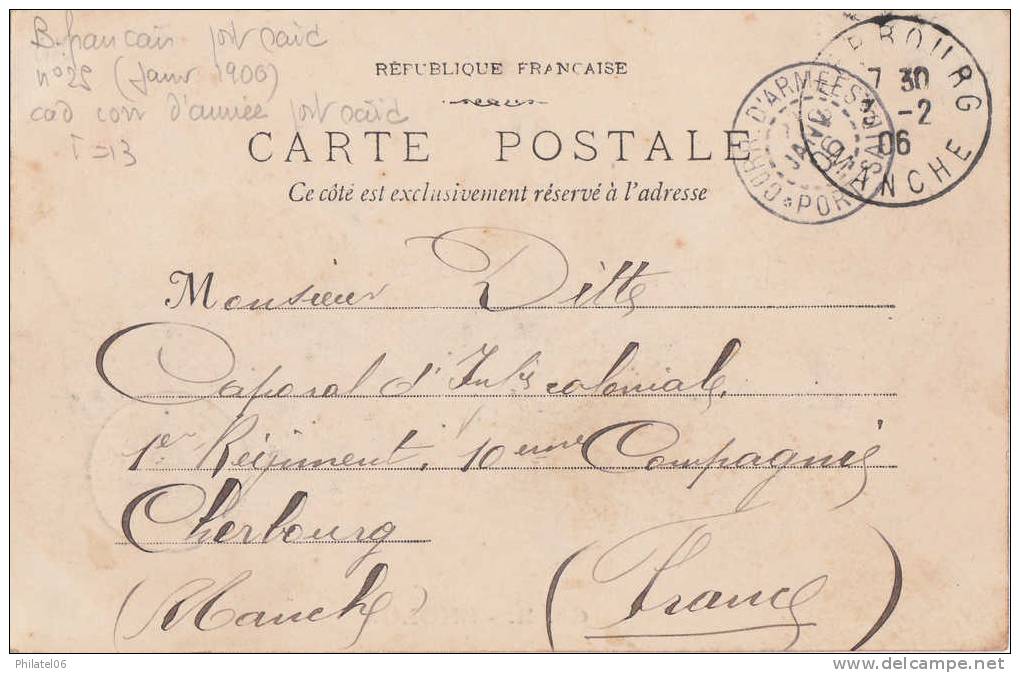 B. francais port said
n° 25 (Janv 1906)
cad corr d'armée port said
I=13
RÉPUBLIQUE FRANÇAISE
CARTE POSTALE
Ce côté est exclusivement réservé à l'adresse
CORR. D'ARMEES PORT SAID
CHERBOURG
7 30
-2
06
MANCHE
Monsieur Ditte
Caporal d'Inf.ie coloniale,
1er Régiment, 10eme Compagnie
Cherbourg
(Manche) (France)
Philatel06
www.delcampe.net